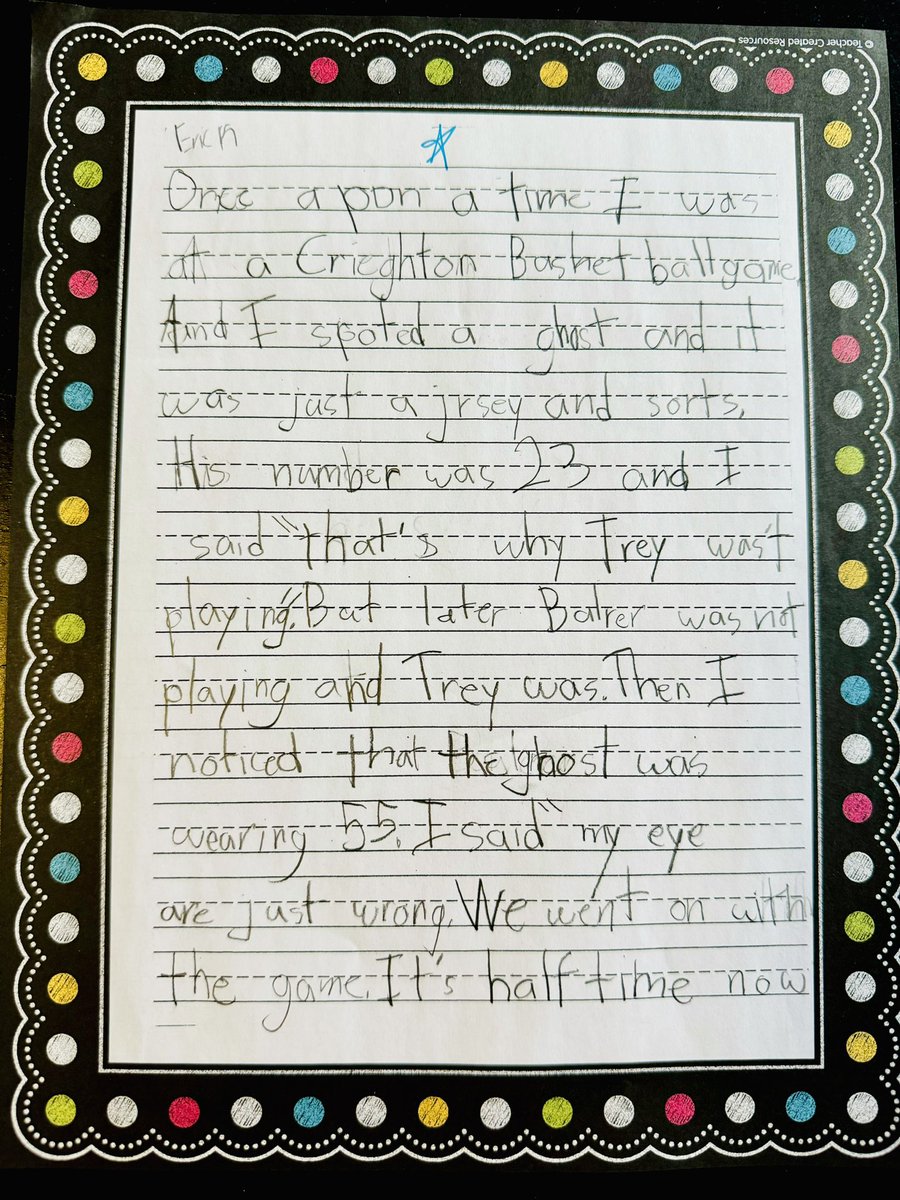 © Teacher Created Resources
Eric A
Once a pon a time I was
at a Crieghton Basket ball game.
And I spoted a ghost and it
was just a jrsey and sorts.
His number was 23 and I
said "that's why Trey was't
playing". But later Balrer was not
playing and Trey was. Then I
noticed that the ghost was
wearing 55. I said" my eye
are just wrong. We went on with
the game. It's half time now